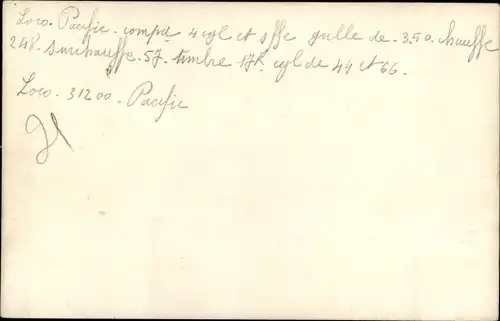 Loco. Pacific. compd 4 cyl et sffe grille de. 3.50. chauffe
248. surchauffe. 57. timbre 17K. cyl de 44 et 66.
Loco. 31200. Pacific